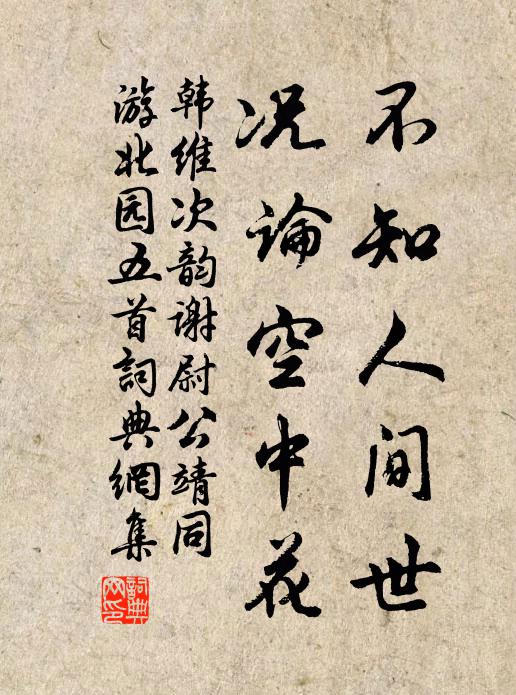 不知人间世
况論空中花
韩维次韵谢尉公靖同
游北园五首詞典網集
詞典